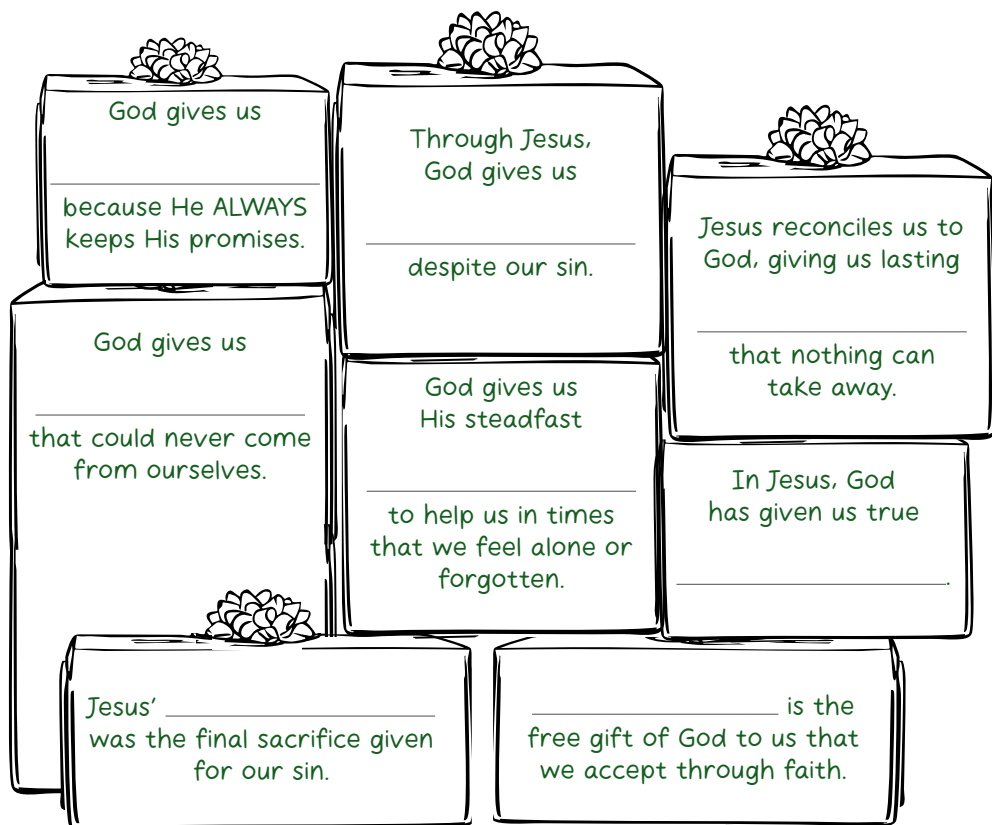 God gives us
because He ALWAYS
keeps His promises.
Through Jesus,
God gives us
despite our sin.
Jesus reconciles us to
God, giving us lasting
that nothing can
take away.
God gives us
that could never come
from ourselves.
God gives us
His steadfast
to help us in times
that we feel alone or
forgotten.
In Jesus, God
has given us true
.
Jesus’
was the final sacrifice given
for our sin.
is the
free gift of God to us that
we accept through faith.